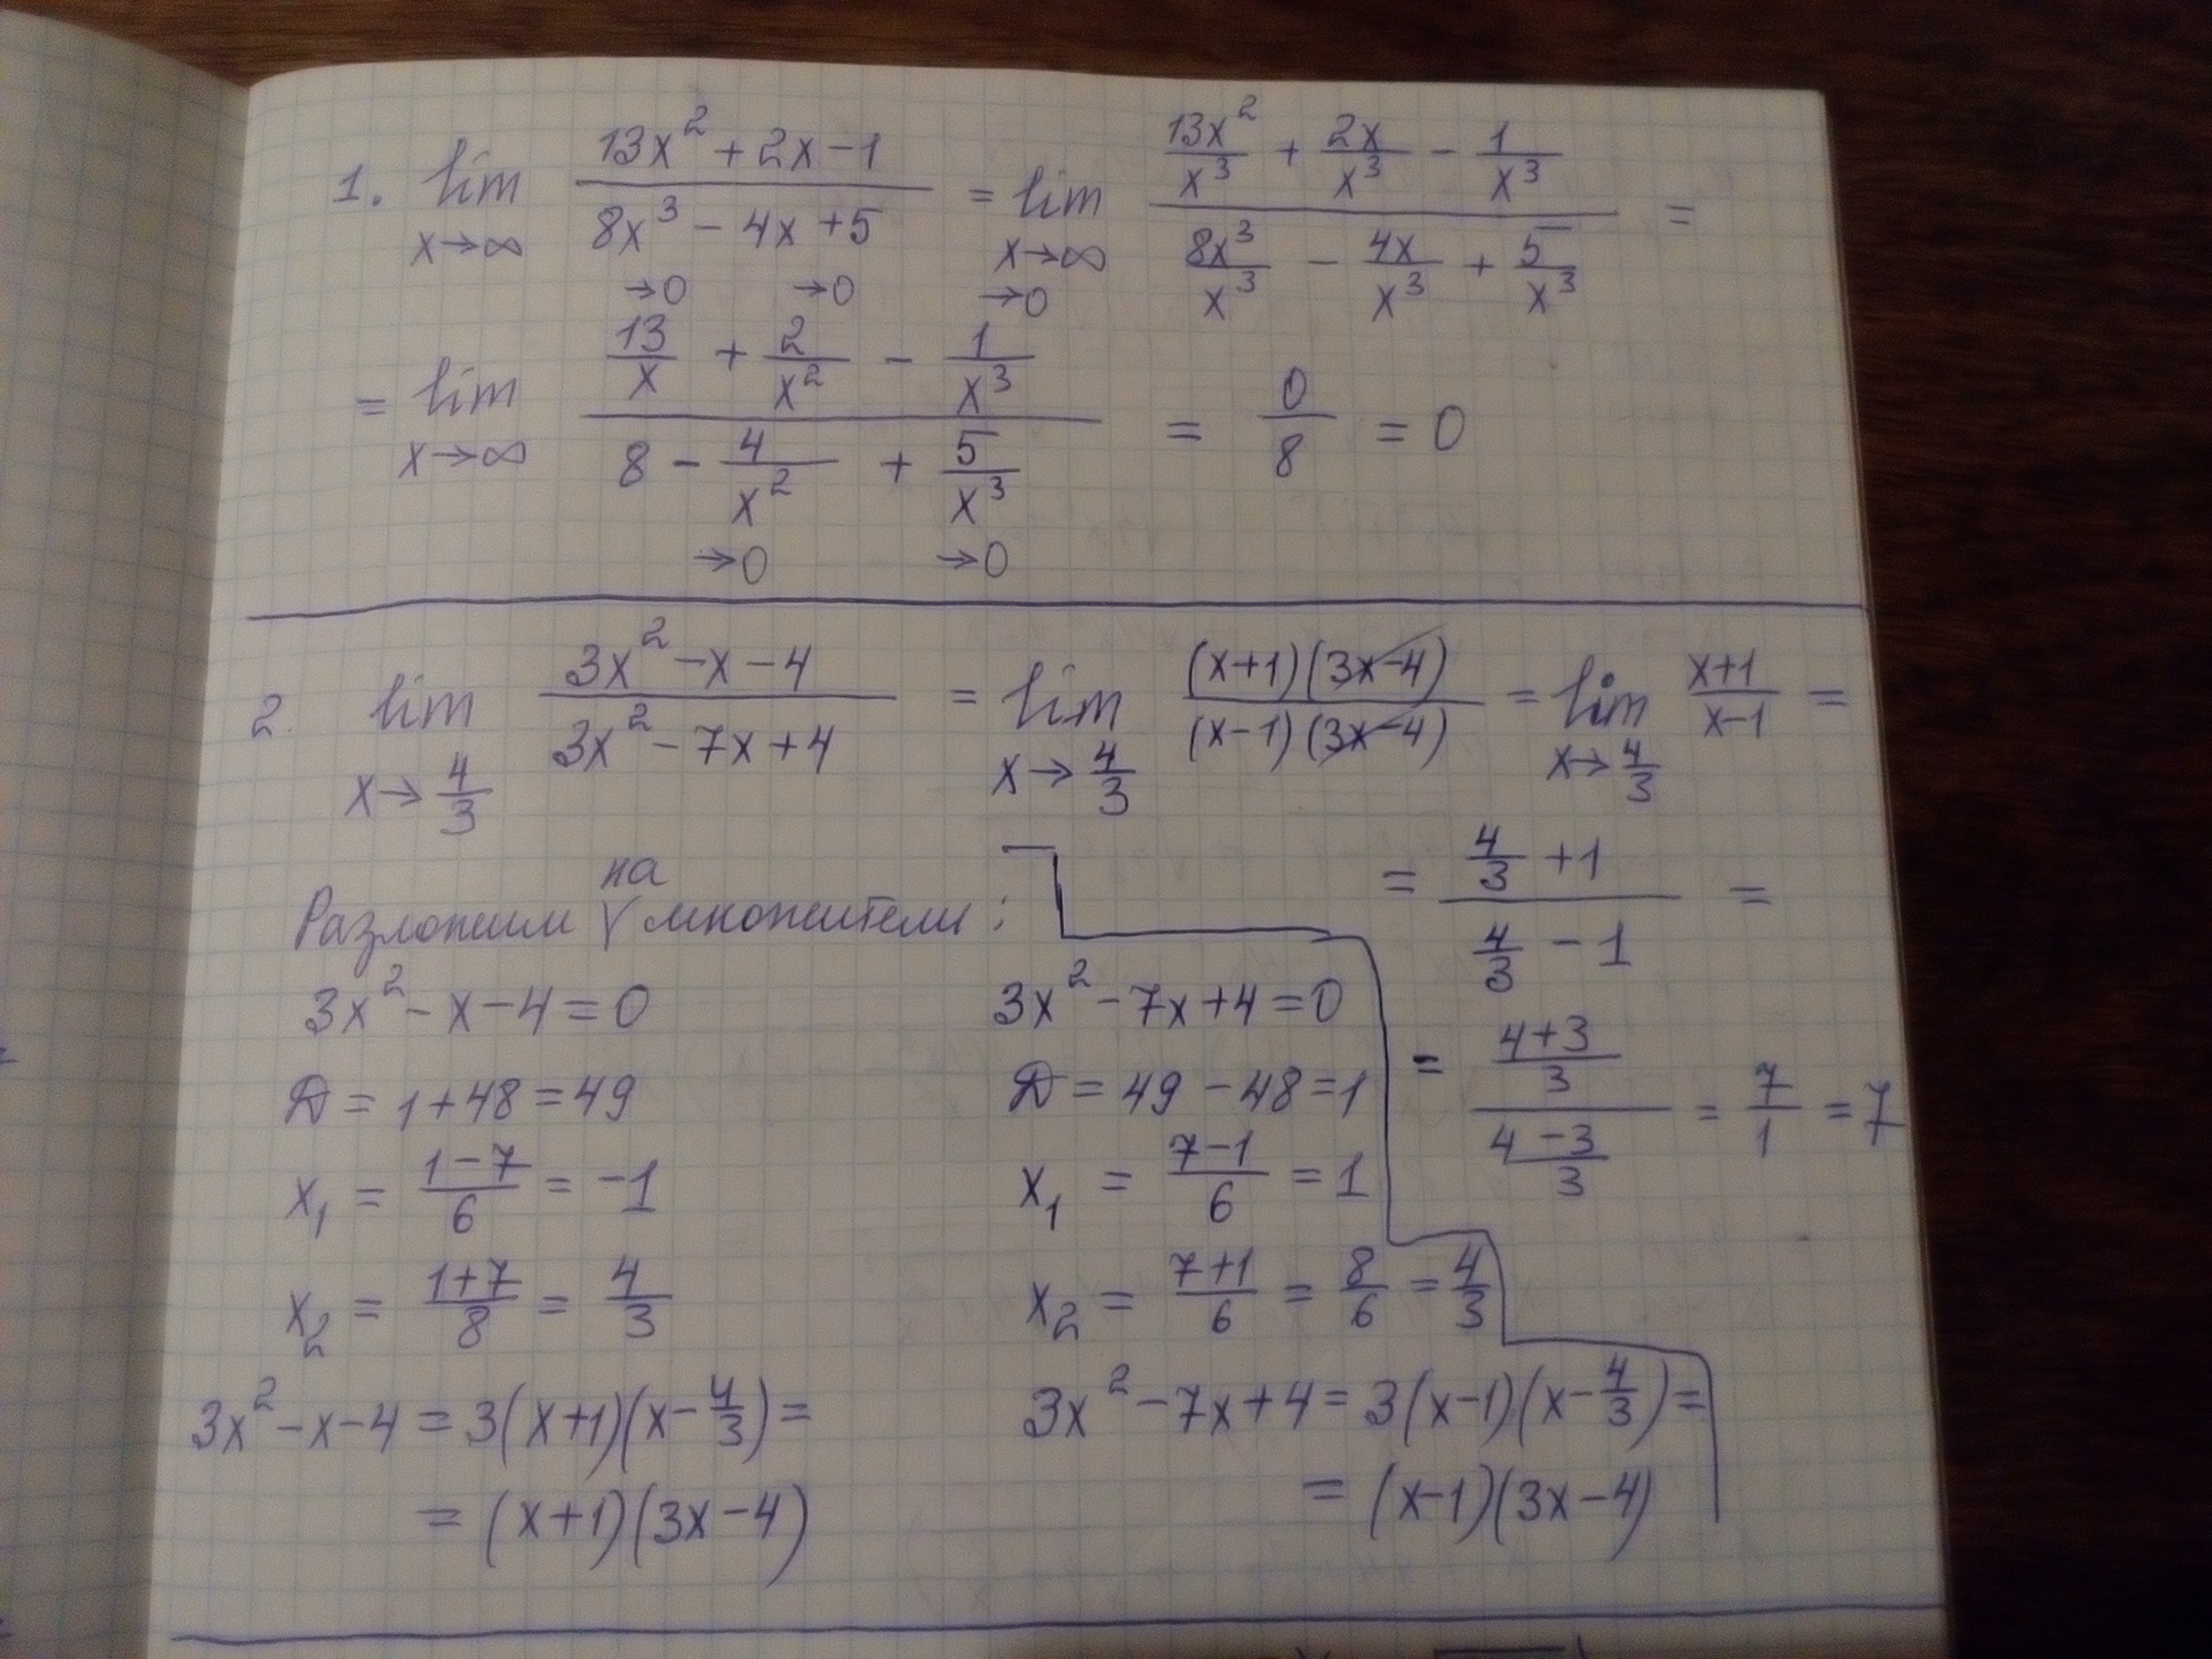 1. lim x→∞ (13x² + 2x − 1)/(8x³ − 4x + 5) = lim x→∞ (13x²/x³ + 2x/x³ − 1/x³)/(8x³/x³ − 4x/x³ + 5/x³) =
→0 →0 →0
= lim x→∞ (13/x + 2/x² − 1/x³)/(8 − 4/x² + 5/x³) = 0/8 = 0
→0 →0
2. lim x→4/3 (3x² − x − 4)/(3x² − 7x + 4) = lim x→4/3 ((x+1)(3x−4))/((x−1)(3x−4)) = lim x→4/3 (x+1)/(x−1) =
= (4/3 + 1)/(4/3 − 1) =
= ((4+3)/3)/((4−3)/3) = 7/1 = 7
Разложим на множители:
3x² − x − 4 = 0
D = 1 + 48 = 49
x₁ = (1−7)/6 = −1
x₂ = (1+7)/8 = 4/3
3x² − x − 4 = 3(x+1)(x − 4/3) =
= (x+1)(3x−4)
3x² − 7x + 4 = 0
D = 49 − 48 = 1
x₁ = (7−1)/6 = 1
x₂ = (7+1)/6 = 8/6 = 4/3
3x² − 7x + 4 = 3(x−1)(x − 4/3) =
= (x−1)(3x−4)